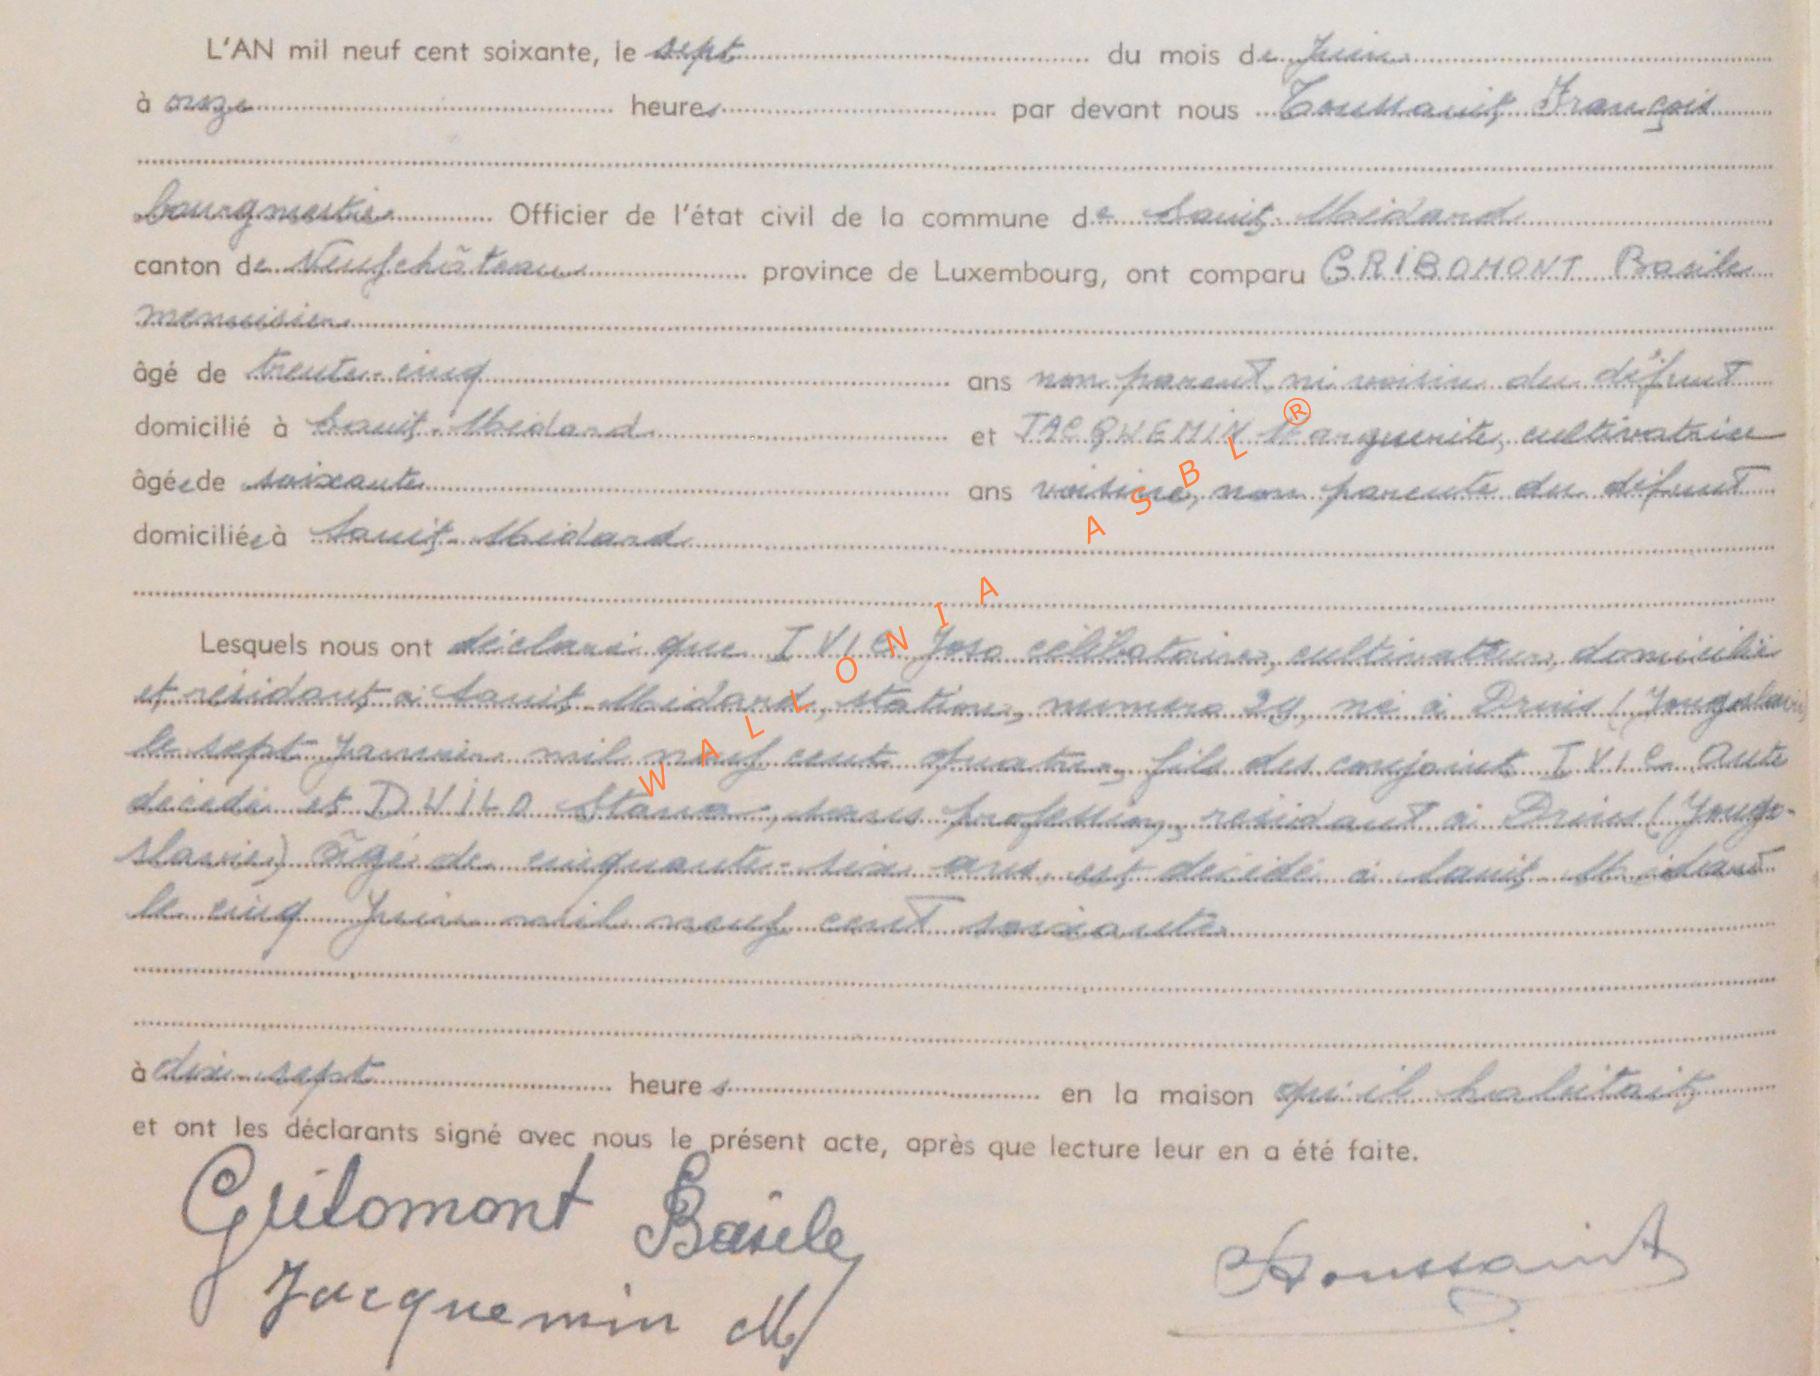 L'AN mil neuf cent soixante, le sept du mois de Juin
à onze heures par devant nous Toussaint François
bourgmestre Officier de l'état civil de la commune de Saint-Médard
canton de Neufchâteau province de Luxembourg, ont comparu GRIBOMONT Basile
menuisier
âgé de trente-cinq ans non parent ni voisin du défunt
domicilié à Saint-Médard et JACQUEMIN Marguerite, cultivatrice
âgée de soixante ans voisine, non parente du défunt
domiciliée à Saint-Médard
Lesquels nous ont déclaré que IVIC Joso célibataire, cultivateur, domicilié
et résidant à Saint-Médard, station, numéro 29, né à Drnis (Yougoslavie)
le sept Janvier mil neuf cent quatre, fils des conjoint IVIC Ante
décédé et DUILO Stana, sans profession, résidant à Drnis (Yougo-
slavie) âgé de cinquante-six ans, est décédé à Saint-Médard
le cinq Juin mil neuf cent soixante
à dix-sept heures en la maison qu'il habitait
et ont les déclarants signé avec nous le présent acte, après que lecture leur en a été faite.
Gribomont Basile
Jacquemin M
Toussaint
WALLONIA ASBL ®